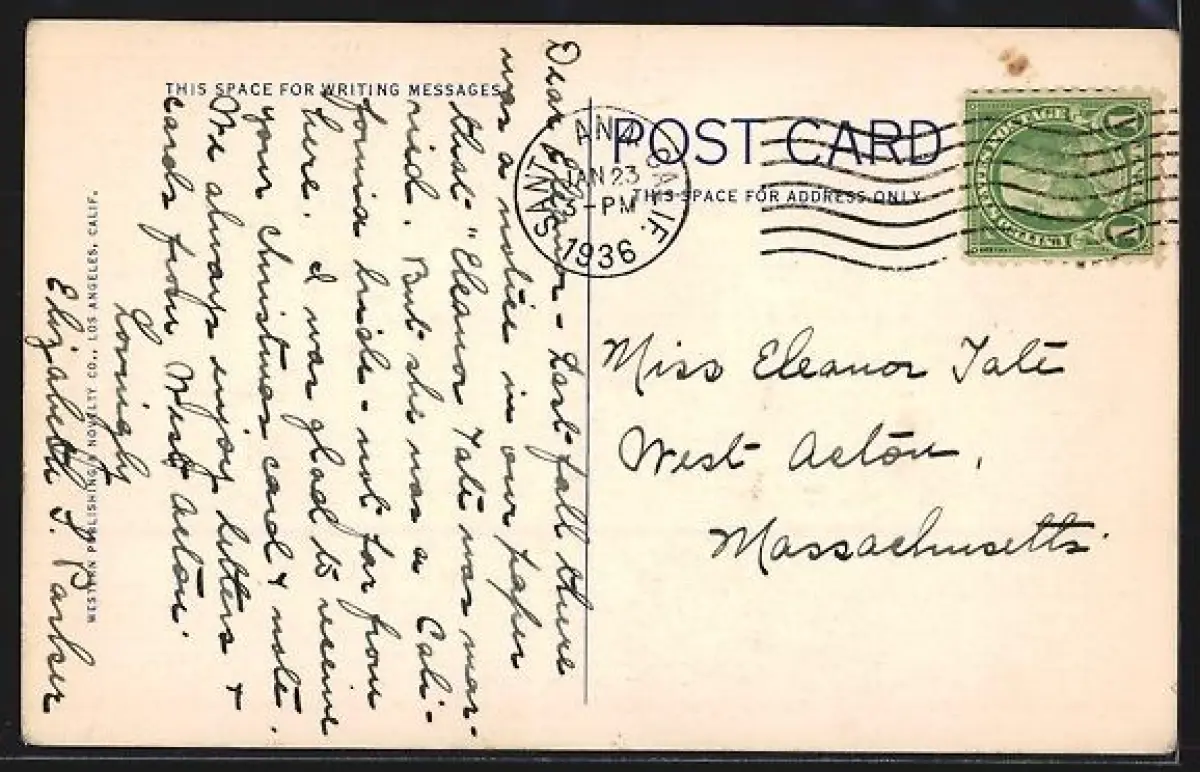 THIS SPACE FOR WRITING MESSAGES
POST CARD
THIS SPACE FOR ADDRESS ONLY
SANTA ANA, CALIF.
JAN 23
5-PM
1936
UNITED STATES POSTAGE
1
1
Dear Eleanor - Last fall there
was a notice in our paper
that "Eleanor Tate was mar-
ried. But she was a Cali-
fornia bride - not far from
here. I was glad to receive
your Christmas card & note.
We always enjoy letters &
cards from West Acton.
Lovingly
Elizabeth S. Parker
Miss Eleanor Tate
West Acton,
Massachusetts.
WESTERN PUBLISHING & NOVELTY CO., LOS ANGELES, CALIF.